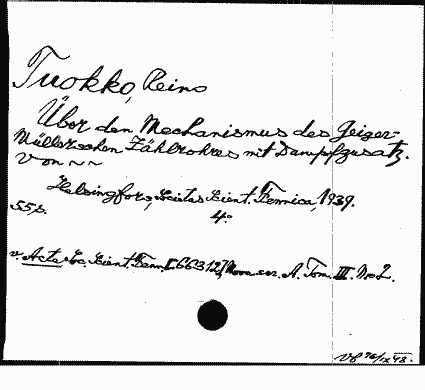 Tuokko, Reino
Über den Mechanismus des Geiger-
Müllerschen Zählrohres mit Dampfzusatz.
Von ~ ~
Helsingfors, Societas Scient. Fennica, 1939.
55 p. 4°
v. Acta Soc. Scient. Fenn. [Nova ser. A. Tom. III. No 2.